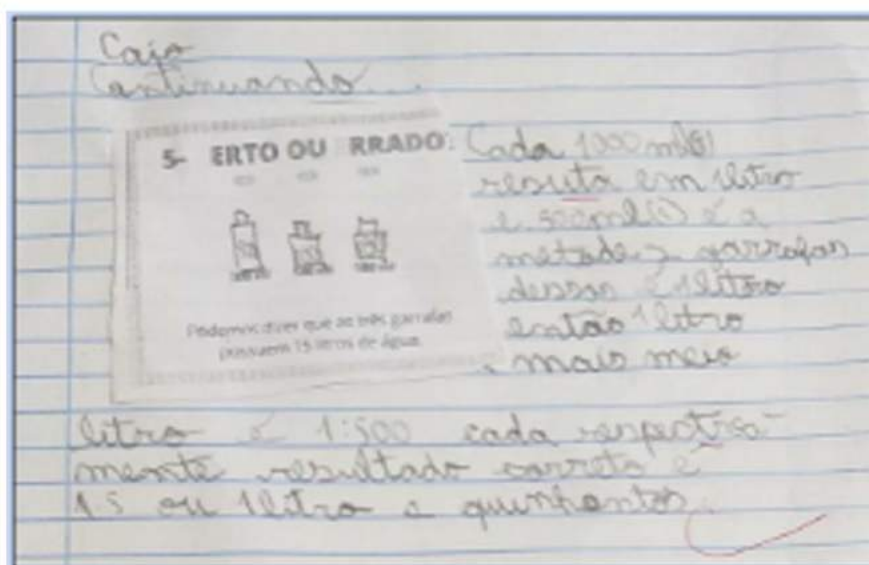 Caio
Continuando...
5- ERTO OU RRADO:
Podemos dizer que as três garrafas
possuem 15 litros de água.
Cada 1000 ml
resuta em 1litro
e 500ml é a
metade 2 garrafas
dessas é 1litro
então 1litro
mais meio
litro é 1:500 cada
mente resultado correto é
1.5 ou 1litro e quinhentos